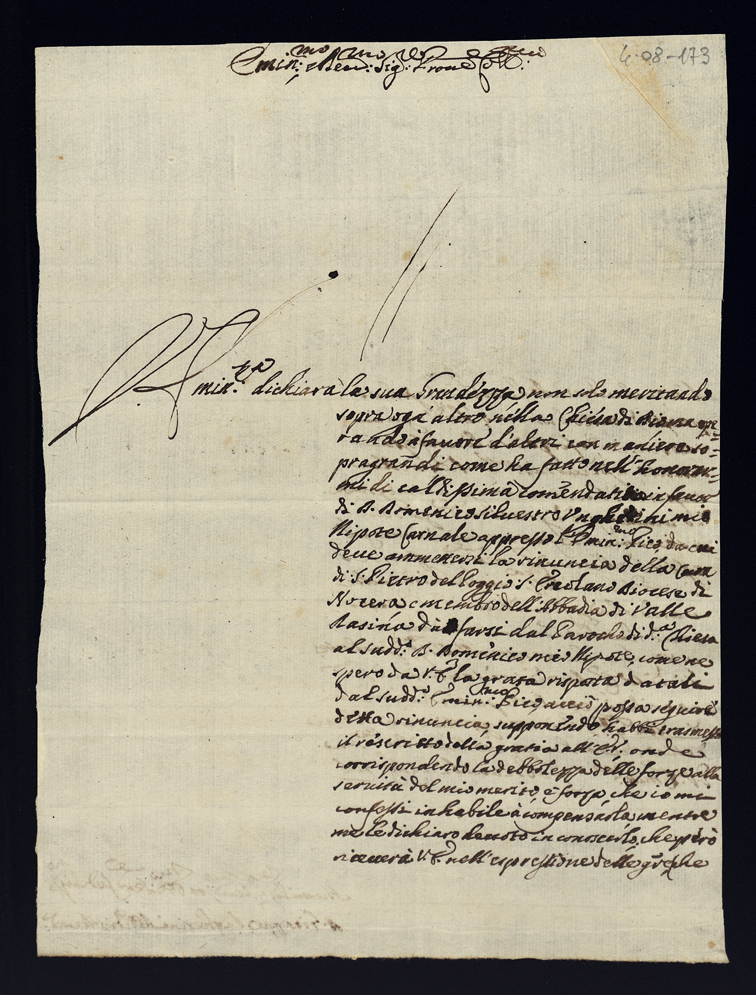 4-08-173
Emin.mo e Rev.mo Sig.re Prone Col.mo
V. Emin.za dichiara la sua Grandezza non solo meritando
sopra ogn'altro nella Chiesa di Dio ma ope
rando à favore d'altri con maniere so-
pragrandi come ha fatto nell'honorar-
mi di caldissima comendatitia in favore
di D. Domenico Silvestro mio
Nipote Carnale appresso l'Emin.mo da cui
deve ammettersi la rinuncia della Cura
di S. Pietro del Poggio S. Ercolano Diocese di
Nocera e membro dell'Abbadia di Valle
Rasina da farsi dal Parocho di d.a Chiesa
al sudd.o D. Domenico mio Nipote, come ne
spero da V. E. la grata risposta datali
dal sudd.o Emin.mo acciò possa seguire
detta rinuncia, supponendo habbi trasmesso
il rescritto della gratia all'E. V. onde
corrispondendo la debbolezza delle forze alla
servitù del mio merito, è forza che io mi
confessi inhabile à compensarla mentre
me le dichiaro devoto in conoscerlo, che però
riceverà V. E. nell'espressione delle gratie che